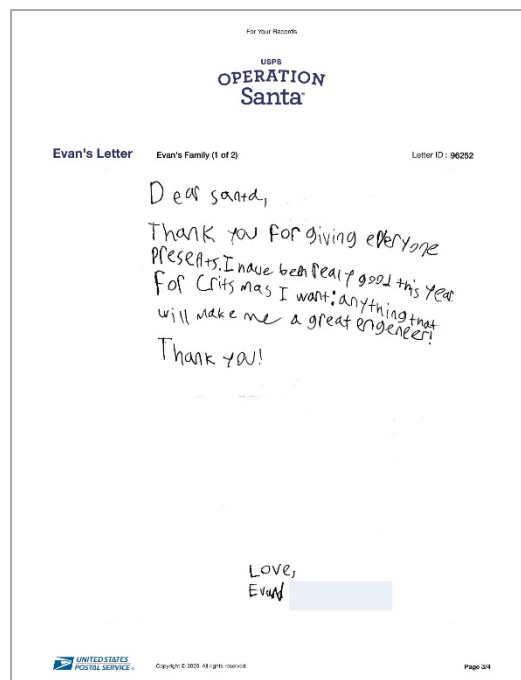 For Your Records
USPS
OPERATION
Santa
Evan's Letter Evan's Family (1 of 2) Letter ID : 96252
Dear santa,
Thank you for giving everyone
presents. I have been realy good this year.
For Critsmas I want: anything that
will make me a great engeneer!
Thank you!
Love,
Evan
UNITED STATES
POSTAL SERVICE® Copyright © 2020. All rights reserved. Page 3/4